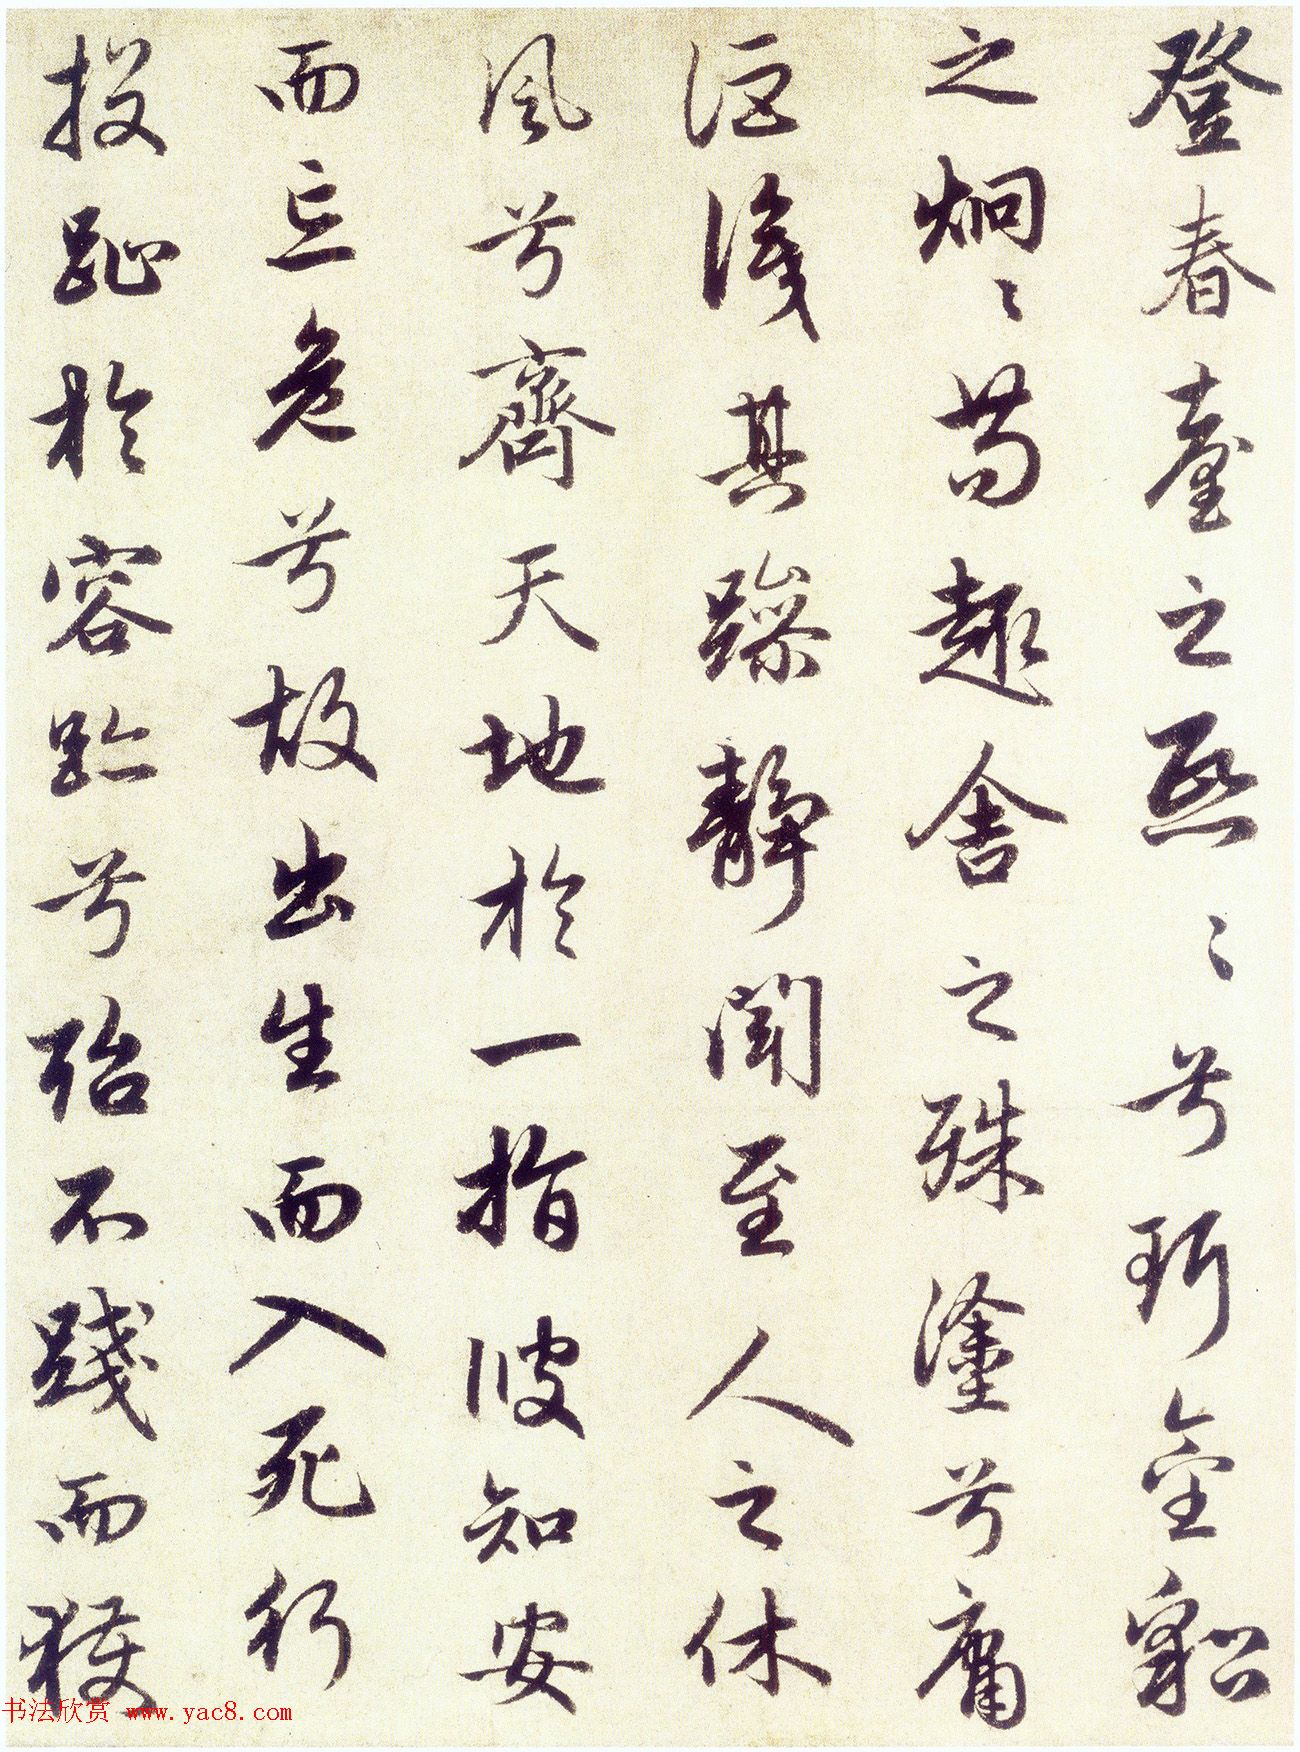 登春臺之熙〻兮珥金貂
之炯〻苟趣舍之殊塗兮庸
詎識其躁靜聞至人之休
風兮齊天地於一指彼知安
而忘危兮故出生而入死行
投趾於容跡兮殆不踐而獲
书法欣赏 www.yac8.com